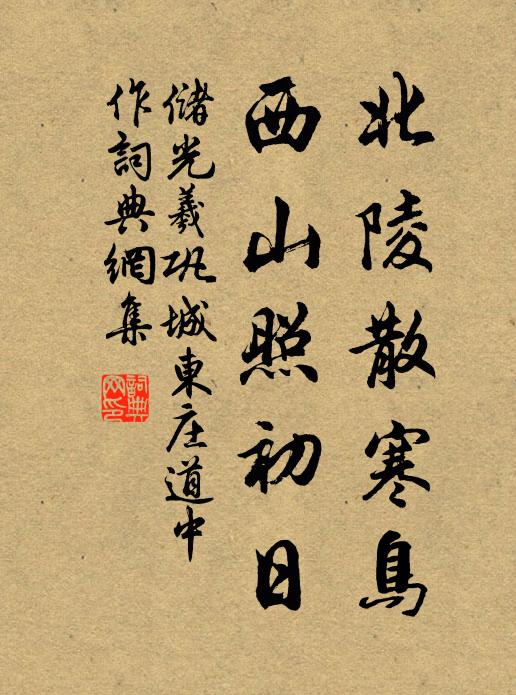 北陵散寒鳥
西山照初日
儲光羲巩城東庄道中
作詞典網集
詞典
网印